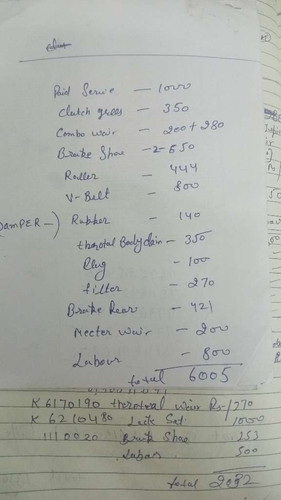 Paid Service — 1000
Clutch grees — 350
Combo wair — 200 + 280
Brake Shoe — 2 - 650
Roller — 444
V-Belt — 800
DAMPER —) Rubber — 140
thorotal Body clain — 350
Plug — 100
filter — 270
Brake Rear — 421
Meeter wair — 200
Labour — 800
total 6005
K 6170190 thorotwal wair Rs-/270
K 6210480 Lock Set 1000
1110020 Brake Shoe
Labor 500
total 2082